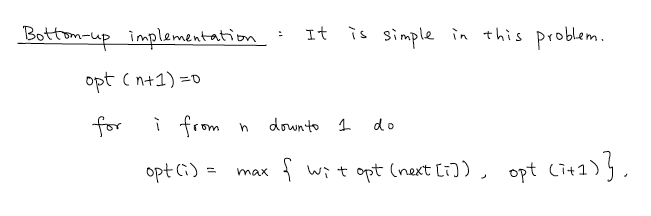 Bottom-up implementation : It is simple in this problem.
opt (n+1)=0
for i from n downto 1 do
opt(i) = max { wi + opt (next[i]), opt (i+1)}.